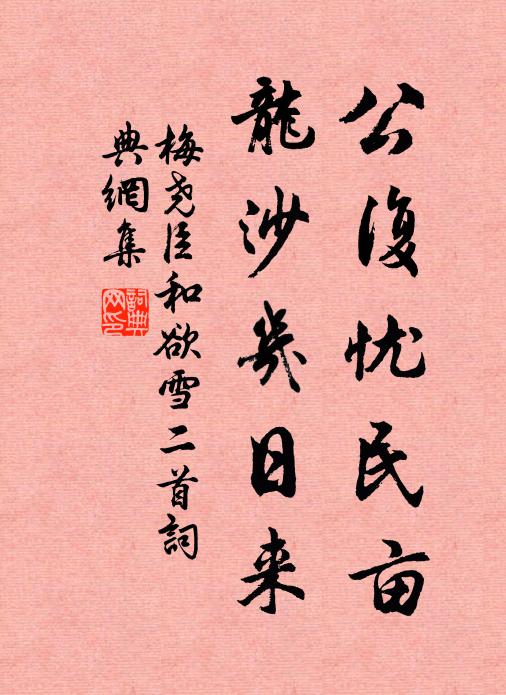 公复忧民亩
龍沙幾日来
梅尧臣和欲雪二首詞
典網集
詞典網印